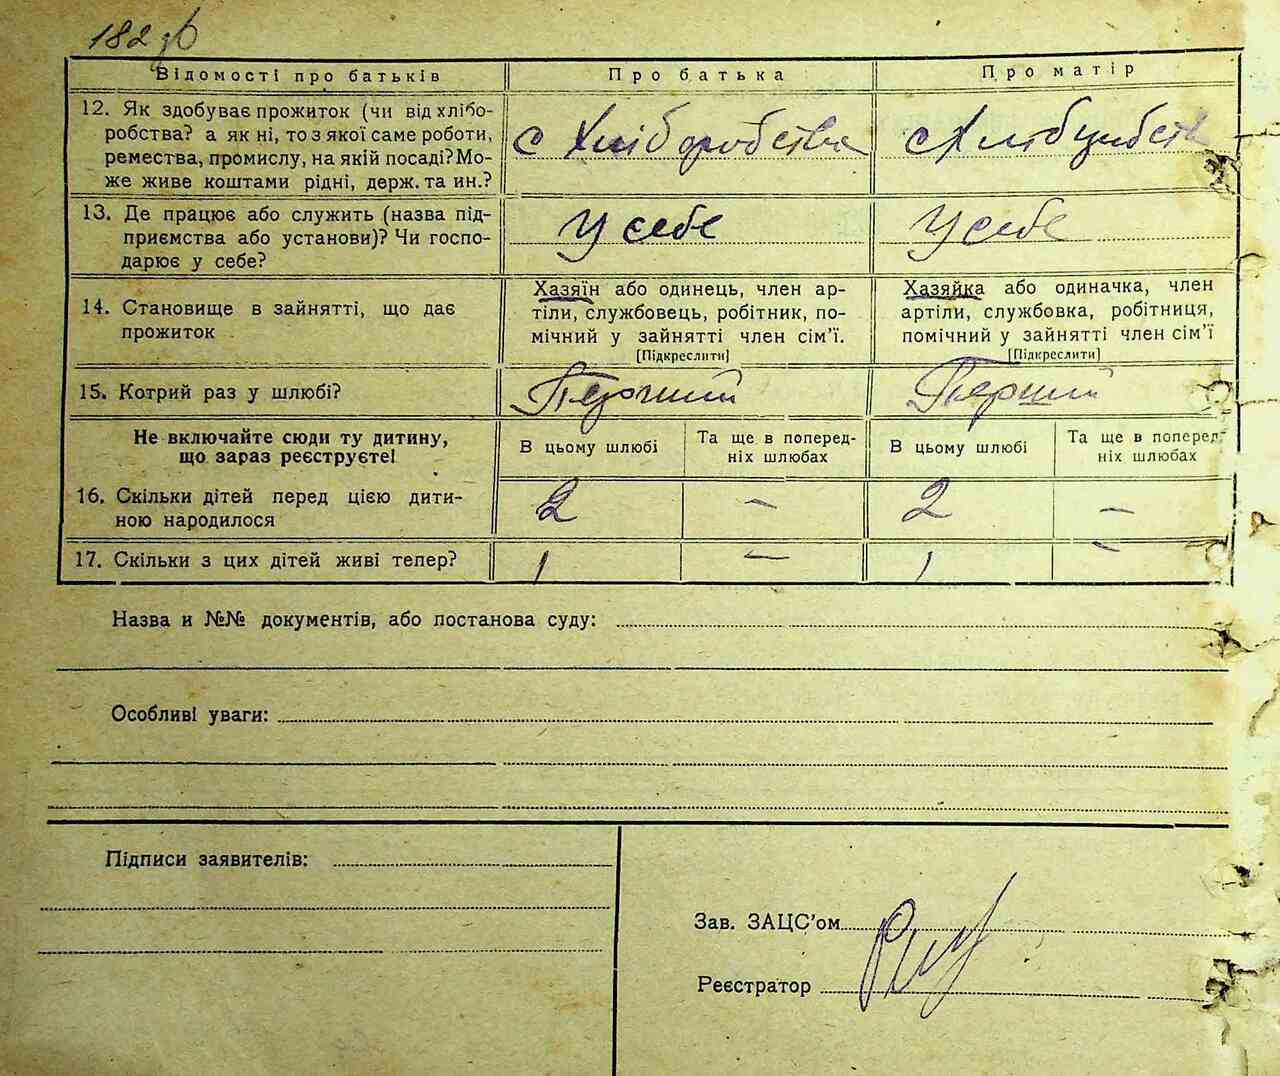 182 зв
Відомості про батьків
Про батька
Про матір
12. Як здобуває прожиток (чи від хлібо-
робства? а як ні, то з якої саме роботи,
ремества, промислу, на якій посаді? Мо-
же живе коштами рідні, держ. та ин.?
с Хліборобства
с Хліборобств
13. Де працює або служить (назва під-
приємства або установи)? Чи госпо-
дарює у себе?
У себе
У себе
14. Становище в зайнятті, що дає
прожиток
Хазяїн або одинець, член ар-
тіли, службовець, робітник, по-
мічний у зайнятті член сім'ї.
[Підкреслити]
Хазяйка або одиначка, член
артіли, службовка, робітниця,
помічний у зайнятті член сім'ї
[Підкреслити]
15. Котрий раз у шлюбі?
Перший
Перший
Не включайте сюди ту дитину,
що зараз реєструєте!
В цьому шлюбі
Та ще в поперед-
ніх шлюбах
В цьому шлюбі
Та ще в поперед-
ніх шлюбах
16. Скільки дітей перед цією дити-
ною народилося
2
—
2
—
17. Скільки з цих дітей живі тепер?
1
—
1
—
Назва и №№ документів, або постанова суду:
Особливі уваги:
Підписи заявителів:
Зав. ЗАЦС'ом
Реєстратор